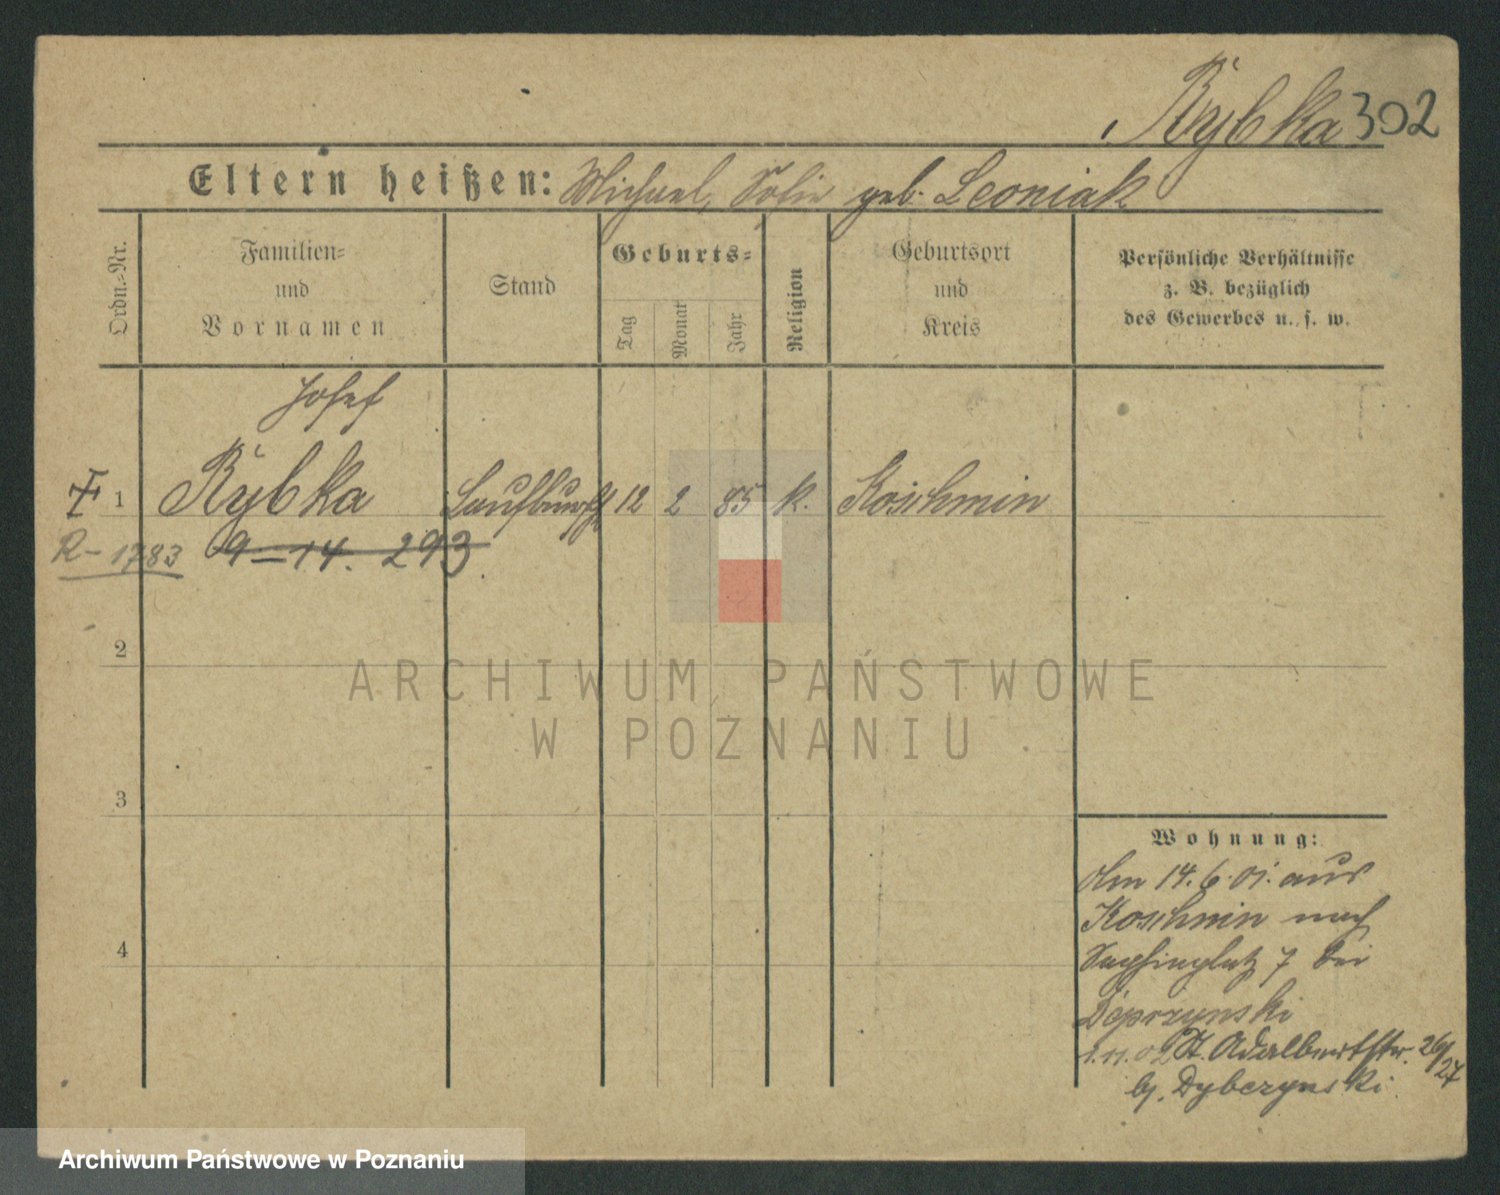 Rybka 302
Eltern heißen: Michael, Sofie geb. Leoniak
Ordn.-Nr.
Familien-
und
Vornamen
Stand
Geburts-
Tag
Monat
Jahr
Religion
Geburtsort
und
Kreis
Persönliche Verhältnisse
z. B. bezüglich
des Gewerbes u. s. w.
Josef
1 Rybka Laufbursche 12 2 85 k. Koschmin
R-1783 9-14. 293
2
ARCHIWUM PAŃSTWOWE
W POZNANIU
3
Wohnung:
Am 14.6.01. aus
Koschmin nach
Sapiehaplatz 7 bei
1.11.02 St. Adalbertstr. 26/27
bj. Dybczynski
4
Archiwum Państwowe w Poznaniu